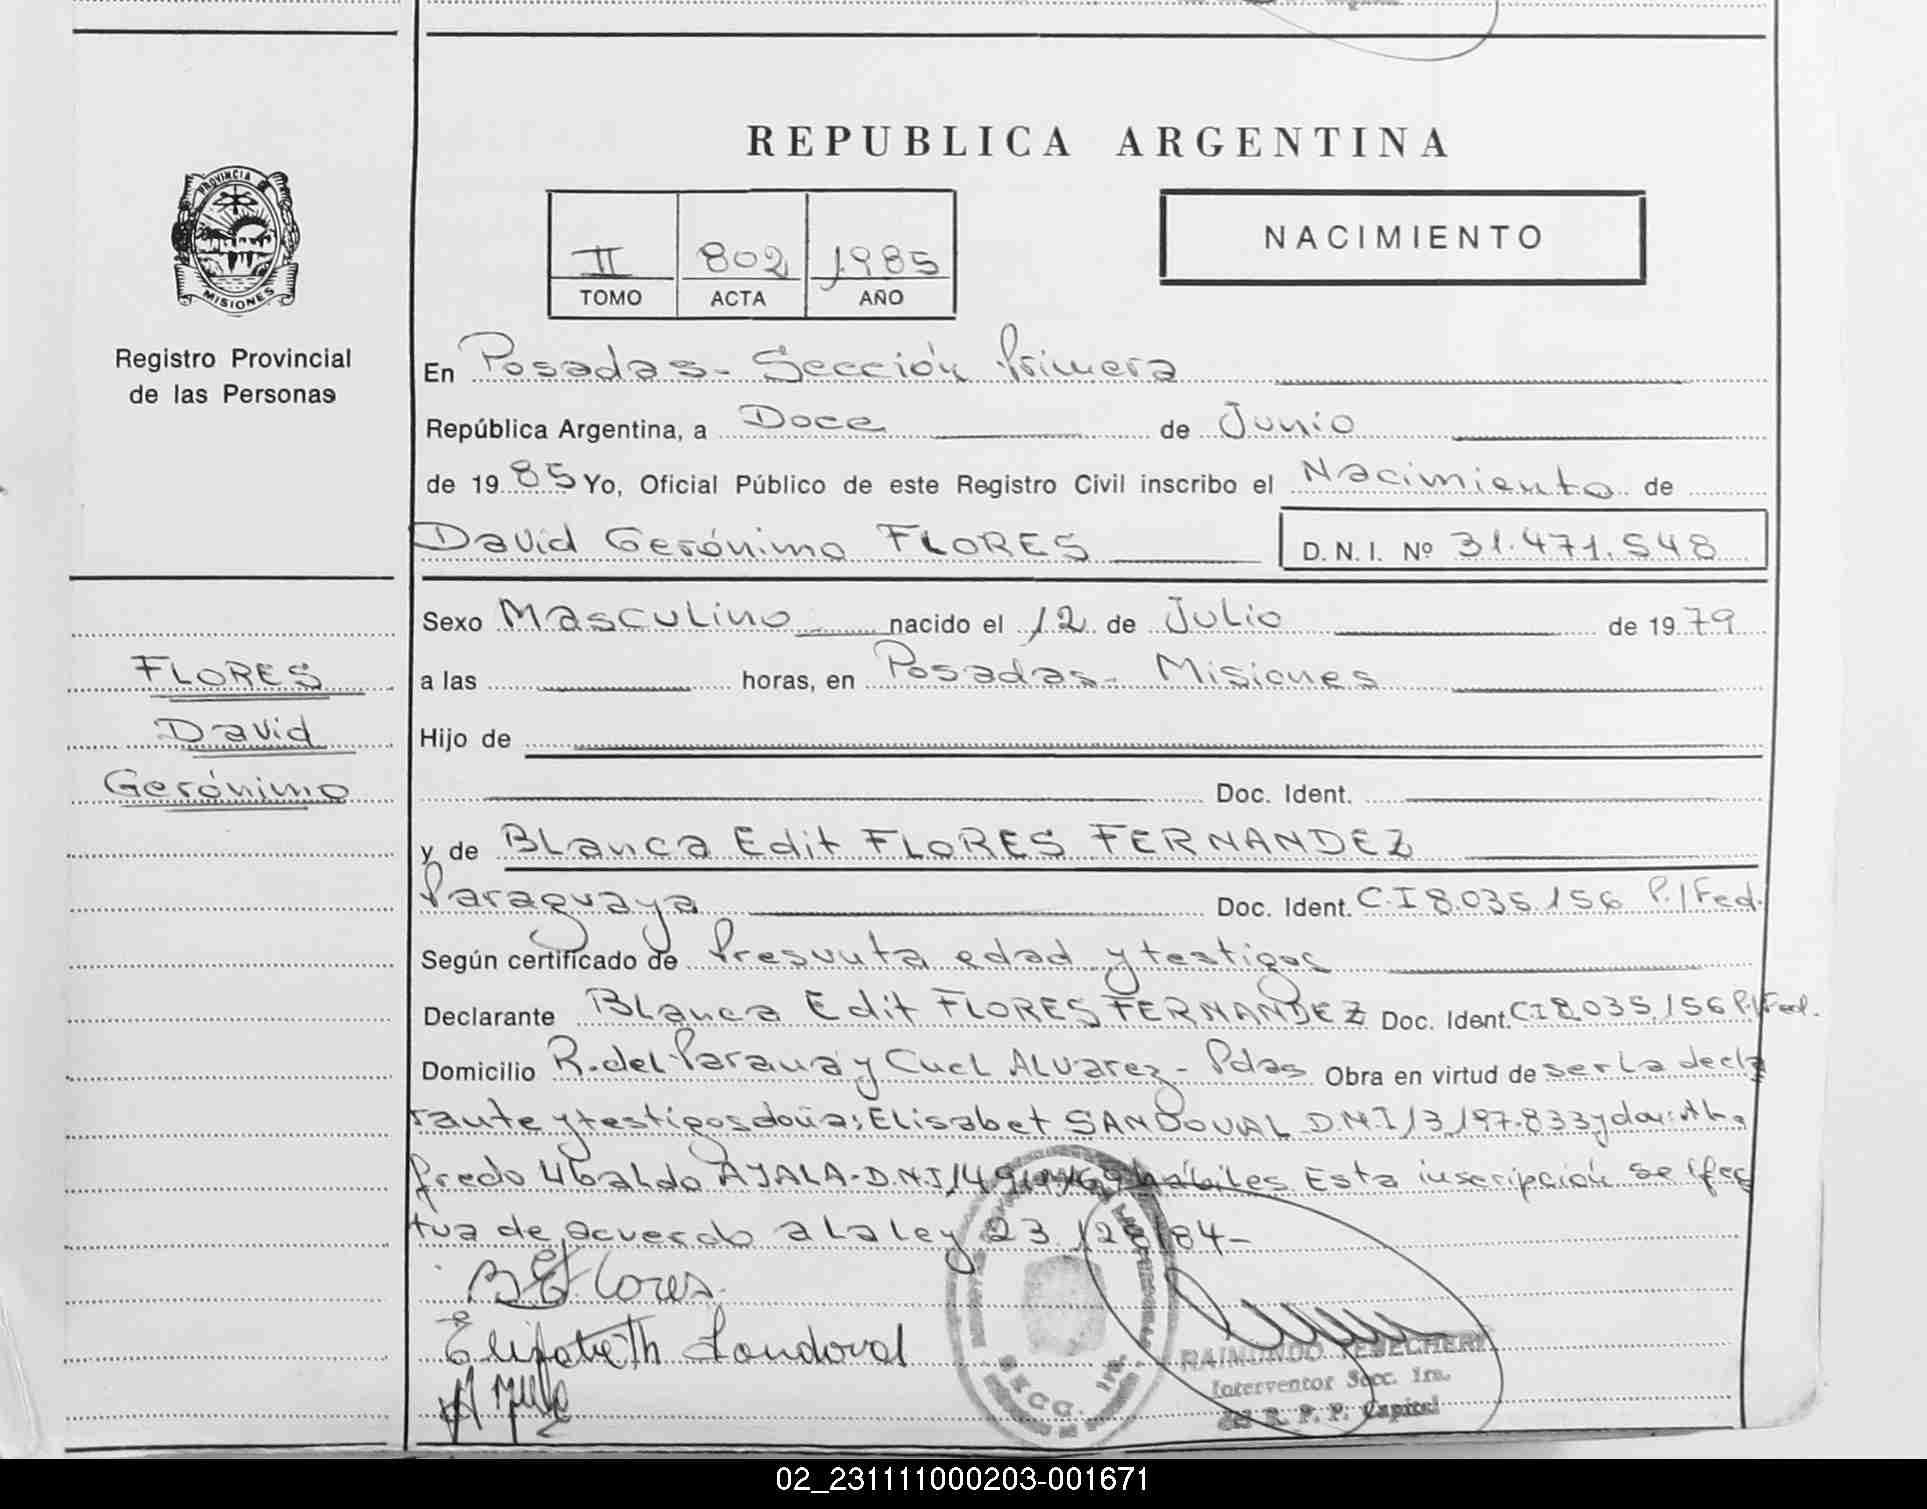 REPUBLICA ARGENTINA
PROVINCIA DE
MISIONES
Registro Provincial
de las Personas
II 802 1985
TOMO ACTA AÑO
NACIMIENTO
En Posadas - Sección Primera
República Argentina, a Doce de Junio
de 1985 Yo, Oficial Público de este Registro Civil inscribo el Nacimiento de
David Gerónimo FLORES D. N. I. Nº 31.471.548
Sexo Masculino nacido el 12 de Julio de 1979
FLORES
David
Gerónimo
a las horas, en Posadas - Misiones
Hijo de
Doc. Ident.
y de Blanca Edit FLORES FERNANDEZ
Paraguaya Doc. Ident. C.I 8.035.156 P./Fed.
Según certificado de Presunta edad y testigos
Declarante Blanca Edit FLORES FERNANDEZ Doc. Ident. CI 8.035.156 P./Fed.
Domicilio R. del Paraná y Cnel Alvarez - Pdas Obra en virtud de ser La decla
rante y testigos doña: Elisabet SANDOVAL D.N.I 13.197.833 y
fredo Ubaldo AYALA - D.N.I hábiles Esta inscripción se efec
tua de acuerdo a la ley 23.128/84-
B E Flores
Elisabeth Sandoval
RAIMUNDO
Interventor Secc. 1ra.
del R. P. P. Capital
SECC. 1ra.
02_231111000203-001671